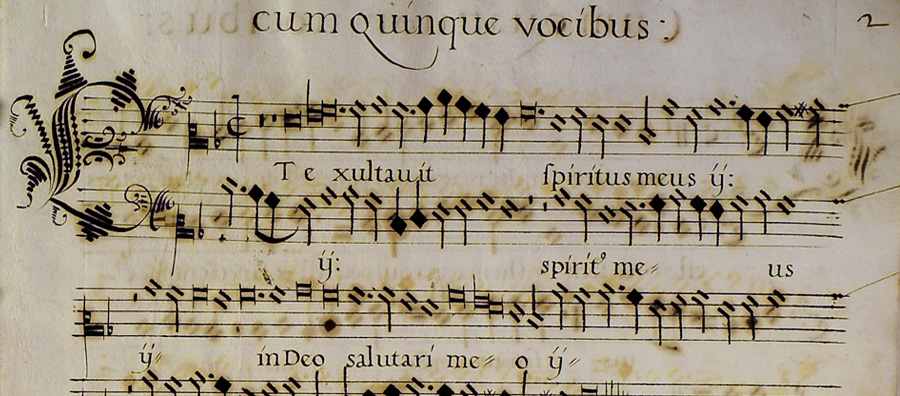 cum Quinque vocibus:
2
ET exultauit spiritus meus ij:
ij: spirit⁹ me= us
ij= in Deo salutari me= o ij=